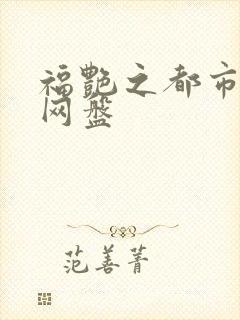 福艳之都市
网盘
范善菁